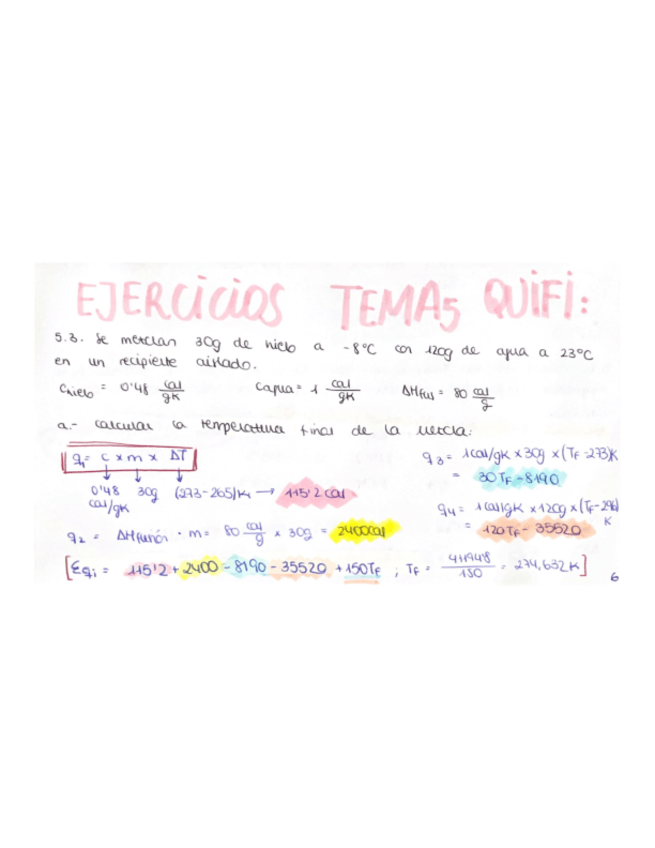 EJERCICIOS TEMA5 QUIFI:
5.3. Se mezclan 30g de hielo a -8°C con 120g de agua a 23°C
en un recipiente aislado.
Chielo = 0'48 cal/gK Cagua = 1 cal/gK ΔHfus = 80 cal/g
a.- calcular la temperatura final de la mezcla:
q1 = c x m x ΔT
0'48 cal/gK 30g (273-265)K → 115'2 cal
q2 = ΔHfusión · m = 80 cal/g x 30g = 2400cal
q3 = 1cal/gK x 30g x (TF-273)K
= 30TF - 8190
q4 = 1cal/gK x 120g x (TF-296)K
= 120TF - 35520
[Σqi = 115'2 + 2400 - 8190 - 35520 + 150TF ; TF = 41194'8/150 = 274,632K]
6